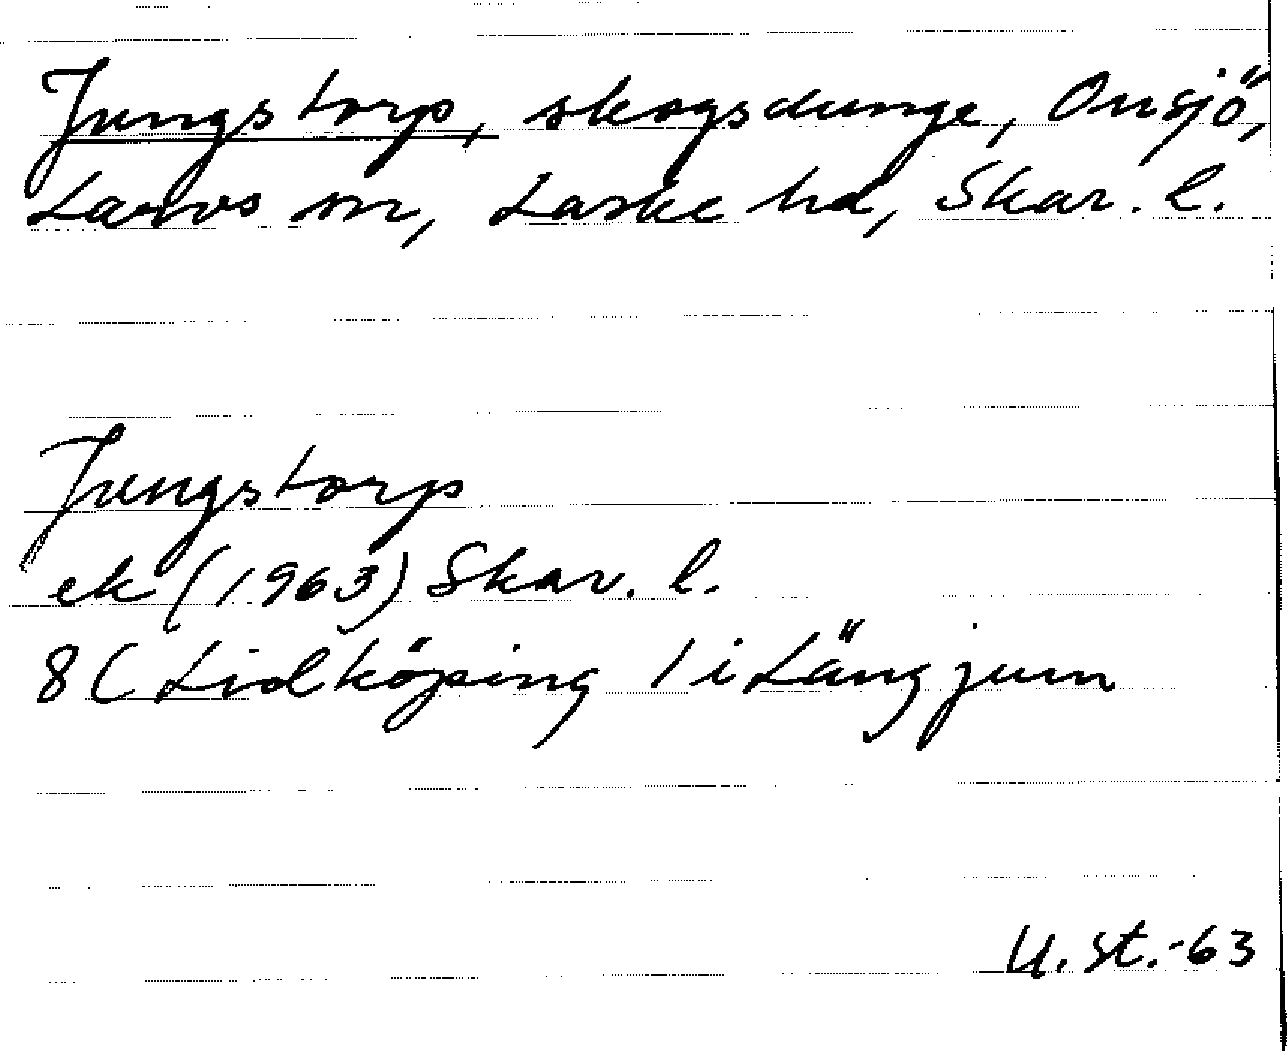 Jungstorp, skogsdunge, Onsjö,
Larvs sn, Laske hd, Skar. l.
Jungstorp
ek (1963) Skar. l.
8C Lidköping 1 i Längjum
U. st. -63